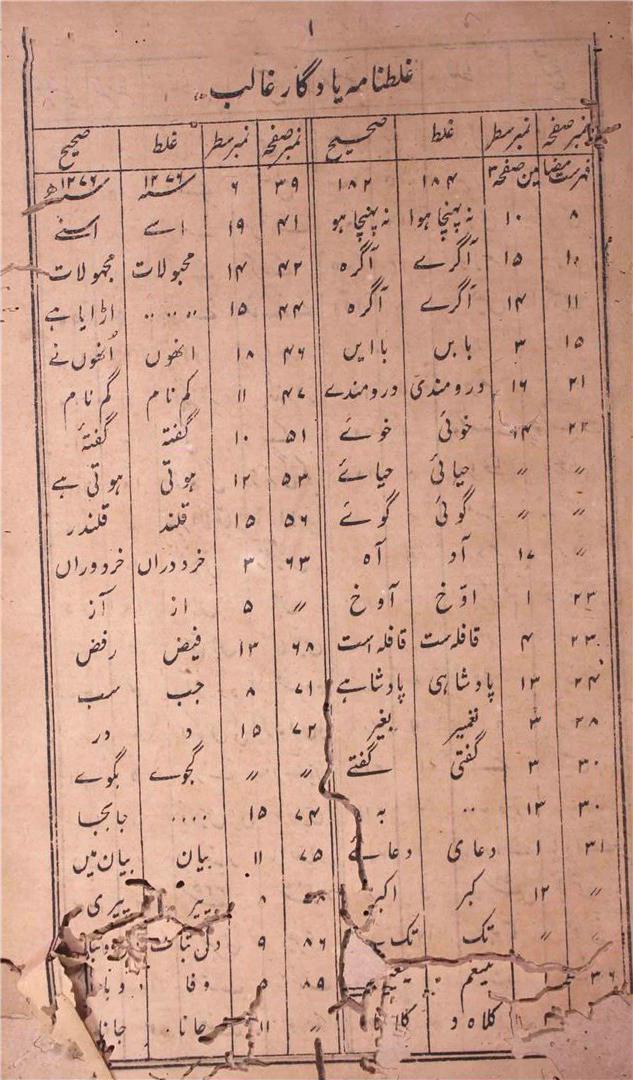 ۱
غلطنامہ یادگار غالب
نمبر صفحہ نمبر سطر غلط صحیح نمبر صفحہ نمبر سطر غلط صحیح
فہرست مضامین صفحہ ۳ ۱۸۴ ۱۸۲ ۳۹ ۶ ۱۲۷۶ ۱۲۷۶ھ
۸ ۱۰ نہ پہنچا ہوا نہ پہنچا ہو ۴۱ ۱۹ اسے اسنے
۱۰ ۱۵ آگرے آگرہ ۴۲ ۱۴ مجبولات مجہولات
۱۱ ۱۴ آگرے آگرہ ۴۴ ۱۵ .... اڑایا ہے
۱۵ ۳ بابں باایں ۴۶ ۱۸ انھوں اُنھوں نے
۲۱ ۱۶ درومندی درومندے ۴۷ ۱۱ کم نام گم نام
۲۲ ۱۴ خوئی خوے ۵۱ ۱۰ گفتہ گفتۂ
〃 〃 حیائی حیاے ۵۳ ۱۲ ہوتی ہوتی ہے
〃 〃 گوئی گوے ۵۶ ۱۵ قلند قلندر
〃 ۱۷ آد آہ ۶۳ ۳ خرددراں خردوراں
۲۳ ۱ اوّخ آوخ 〃 ۵ از آز
۲۳ ۴ قافلہ ست قافلہ است ۶۸ ۱۳ فیض رفض
۲۴ ۱۳ پادشاہی پادشاہے ۷۱ ۸ جب سب
۲۸ ۳ تغییر بغیر ۷۲ ۱۵ د در
۳۰ ۳ گفتی گفتے 〃 〃 گجوے بگوے
۳۰ ۱۳ .. بہ ۷۴ ۱۵ .... جابجا
۳۱ ۱ دعای دعاے ۷۵ ۱۱ بیان بیان میں
〃 ۱۲ کبر اکبر ۸ پیر پیری
〃 〃 تک تک ۸۶ ۹
۳۶ ۸۹ وفا
کلاہ و 〃 ۱۱ جانا